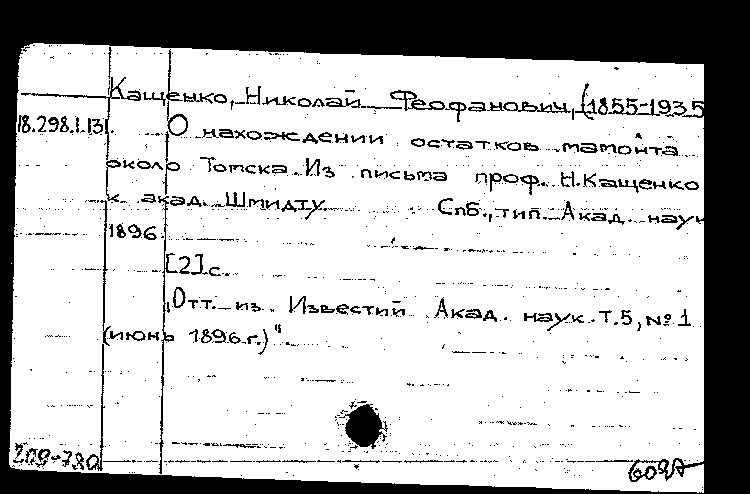 Кащенко, Николай Феофанович, (1855-1935
18.298.1.131.
О нахождении остатков мамонта
около Томска Из письма проф. Н.Кащенко
к акад. Шмидту. Спб., тип. Акад. наук
1896
[2] с.
„Отт. из Известий Акад. наук. Т.5, №1
(июнь 1896 г.)".
209-780